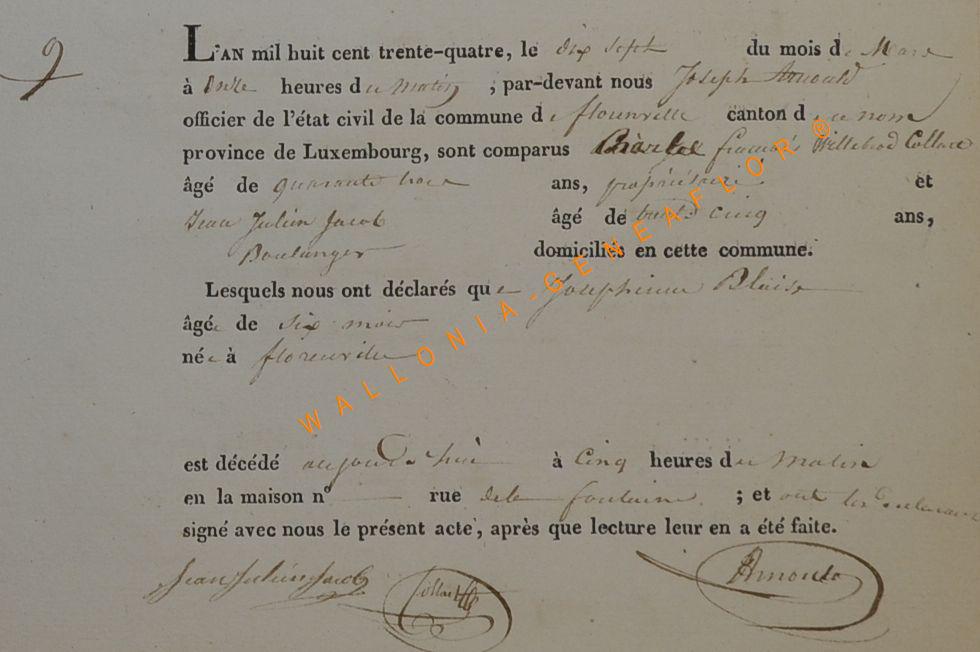 9
L'AN mil huit cent trente-quatre, le dix sept du mois de Mars
à onze heures du matin, par-devant nous Joseph Arnould
officier de l'état civil de la commune de florenville canton de ce nom
province de Luxembourg, sont comparus Charles françois Willebrod Collard
âgé de quarante trois ans, propriétaire et
Jean Julien Jacob âgé de trente cinq ans,
Boulanger domiciliés en cette commune.
Lesquels nous ont déclarés que Josephinne Blaise
âgée de six mois
née à florenville
est décédé aujourd'hui à Cinq heures du Matin
en la maison n° rue dela fontaine ; et ont les déclarans
signé avec nous le présent acte, après que lecture leur en a été faite.
Jean Julien Jacob Collard Arnould
WALLONIA-GENEAFLOR ®